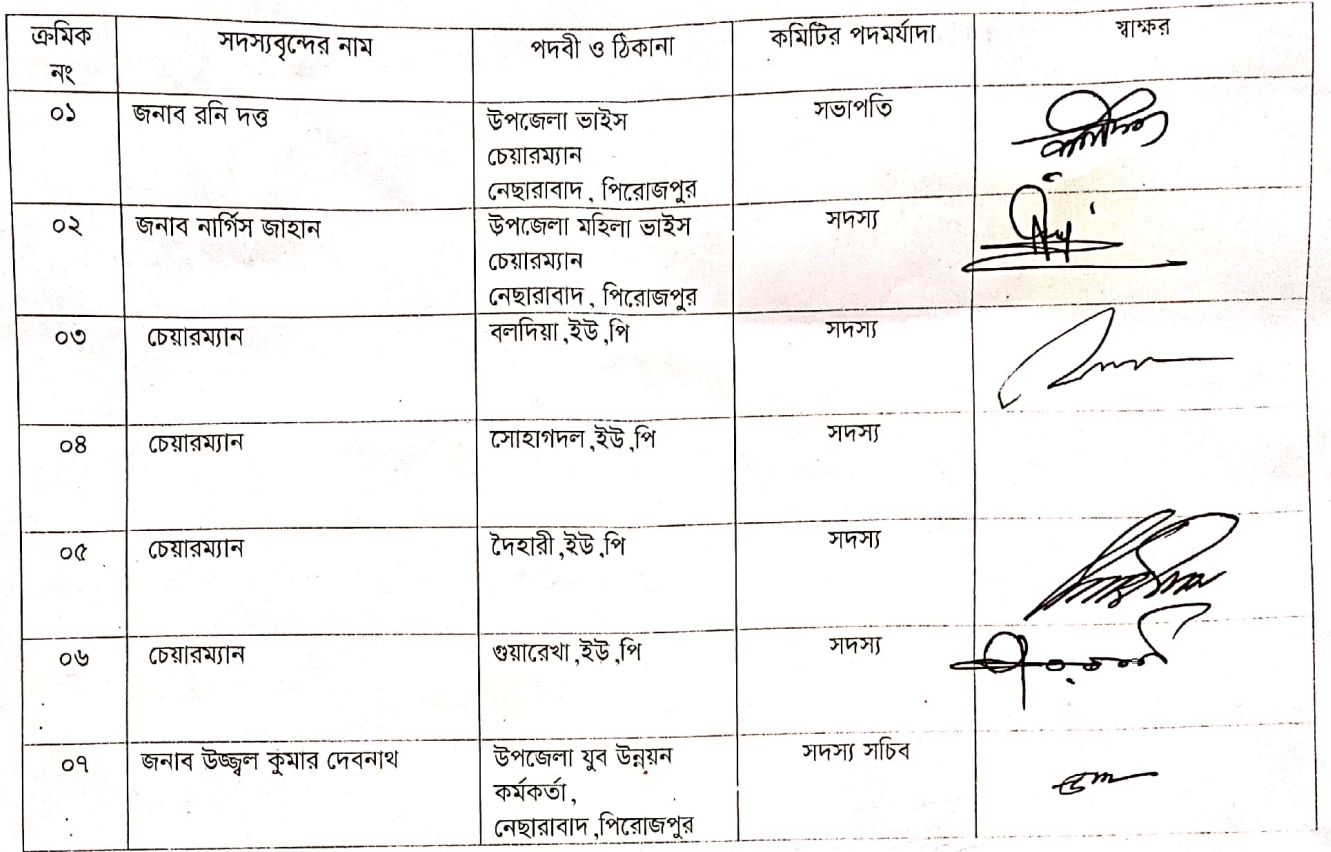 ক্রমিক নং সদস্যবৃন্দের নাম পদবী ও ঠিকানা কমিটির পদমর্যাদা স্বাক্ষর
০১ জনাব রনি দত্ত উপজেলা ভাইস সভাপতি
চেয়ারম্যান
নেছারাবাদ, পিরোজপুর
০২ জনাব নার্গিস জাহান উপজেলা মহিলা ভাইস সদস্য
চেয়ারম্যান
নেছারাবাদ, পিরোজপুর
০৩ চেয়ারম্যান বলদিয়া,ইউ,পি সদস্য
০৪ চেয়ারম্যান সোহাগদল,ইউ,পি সদস্য
০৫ চেয়ারম্যান দৈহারী,ইউ,পি সদস্য
০৬ চেয়ারম্যান গুয়ারেখা,ইউ,পি সদস্য
০৭ জনাব উজ্জ্বল কুমার দেবনাথ উপজেলা যুব উন্নয়ন সদস্য সচিব
কর্মকর্তা,
নেছারাবাদ,পিরোজপুর